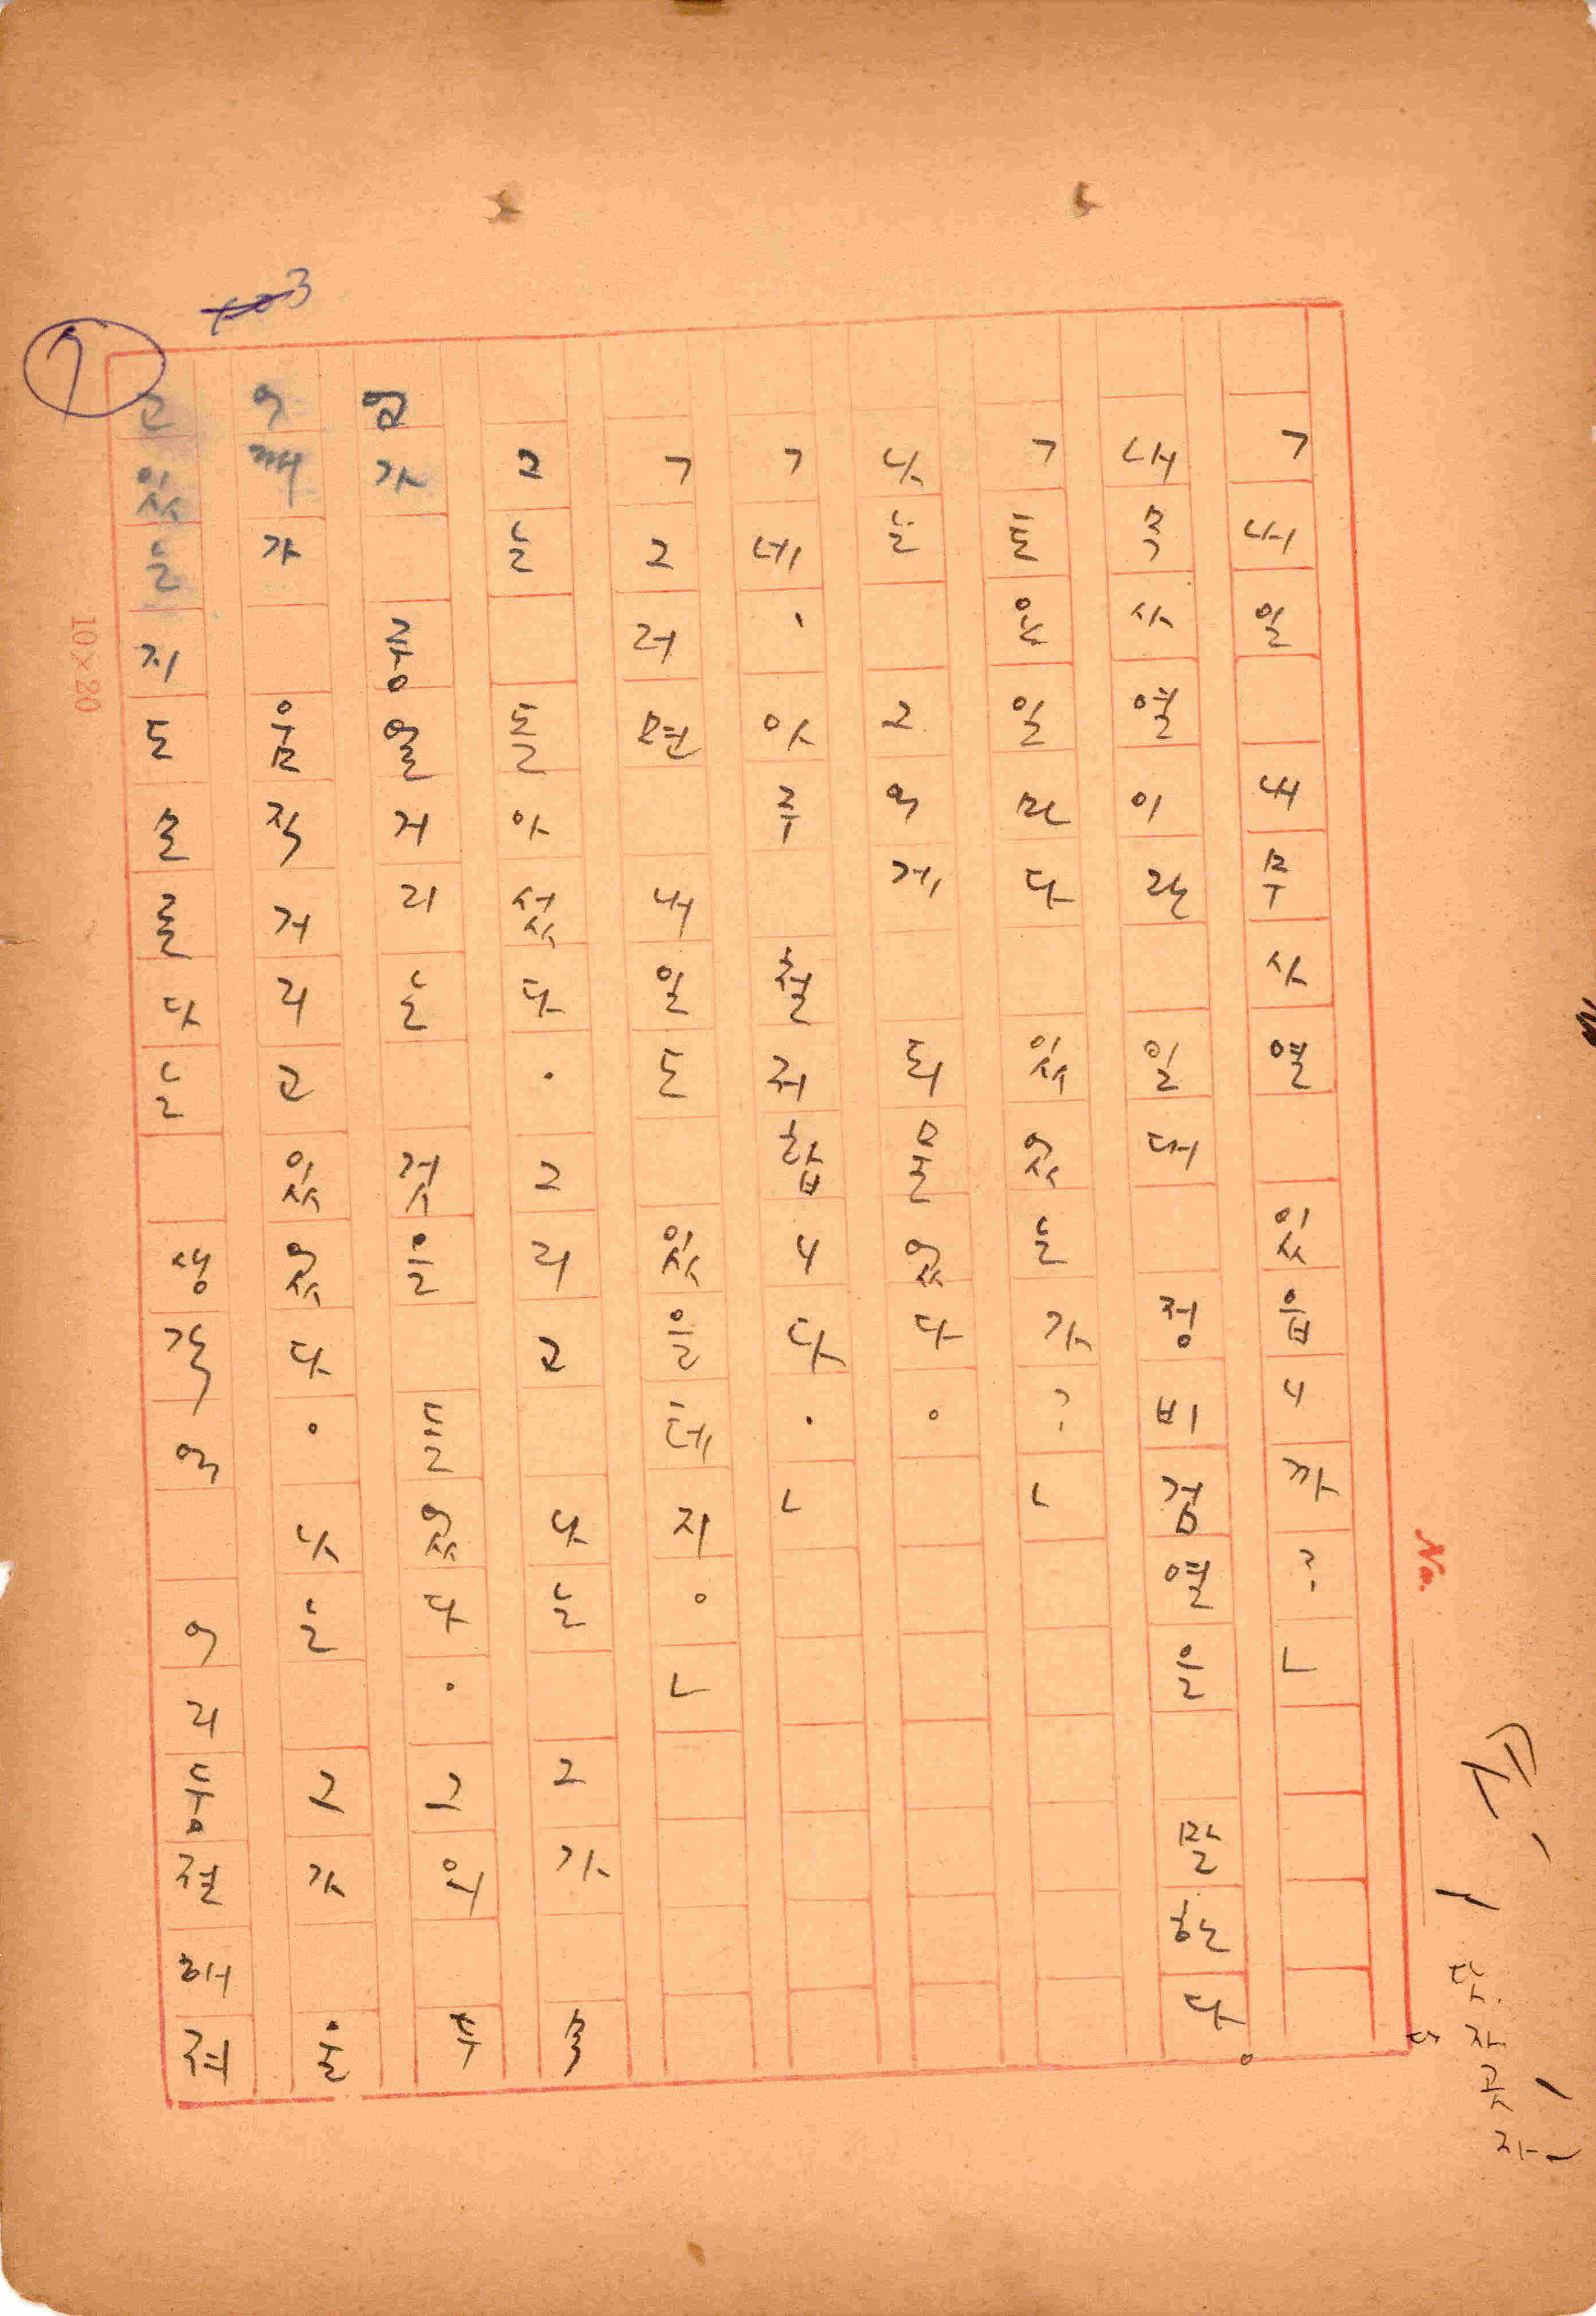 「내일 내무사열 있읍니까?」
내무사열이란 일대 정비검열을 말한다。
「토요일마다 있었는가?」
나는 그에게 되물었다。
「네、아주 철저합니다.」
「그러면 내일도 있을테지。」
그는 돌아섰다. 그리고 나는 그가 무
언가 중얼거리는 것을 들었다. 그의 두
어깨가 움직거리고 있었다. 나는 그가 울
고 있는지도 모른다는 생각에 어리둥절해져
No.
10×20
3
7